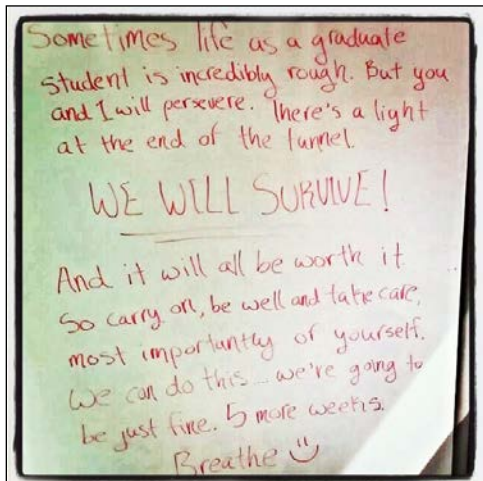 Sometimes life as a graduate
student is incredibly rough. But you
and I will persevere. There's a light
at the end of the tunnel.
WE WILL SURVIVE!
And it will all be worth it.
So carry on, be well and take care,
most importantly of yourself.
We can do this... we're going to
be just fine. 5 more weeks.
Breathe